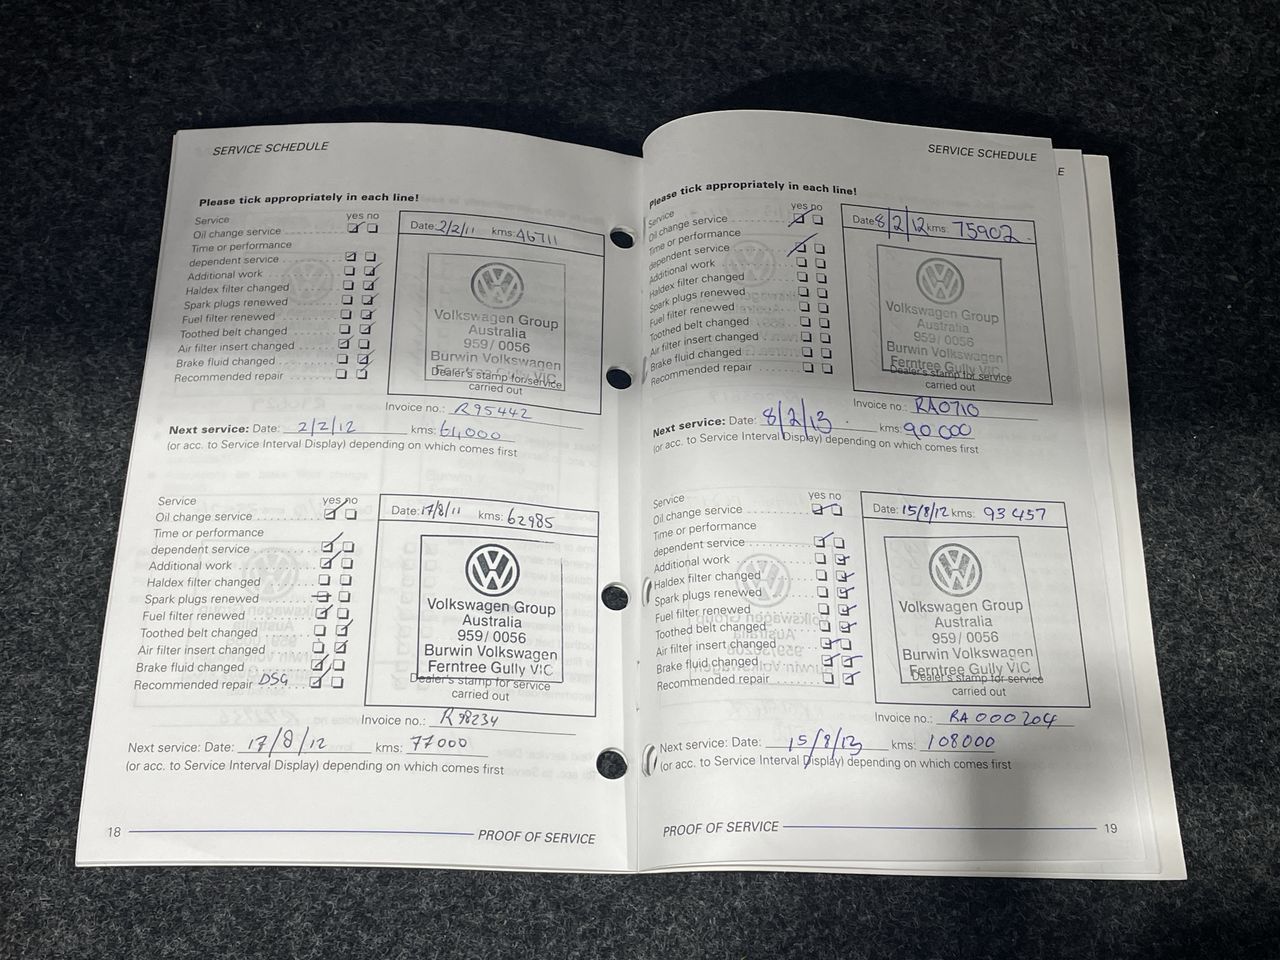 SERVICE SCHEDULE
Please tick appropriately in each line!
Service yes no
Oil change service
Time or performance
dependent service
Additional work
Haldex filter changed
Spark plugs renewed
Fuel filter renewed
Toothed belt changed
Air filter insert changed
Brake fluid changed
Recommended repair
Date: 2/2/11 kms: 46711
Volkswagen Group
Australia
959/ 0056
Burwin Volkswagen
Ferntree Gully VIC
Dealer's stamp for service
carried out
Invoice no.: R95442
Next service: Date: 2/2/12 kms: 61,000
(or acc. to Service Interval Display) depending on which comes first
Service yes no
Oil change service
Time or performance
dependent service
Additional work
Haldex filter changed
Spark plugs renewed
Fuel filter renewed
Toothed belt changed
Air filter insert changed
Brake fluid changed
Recommended repair DSG
Date: 17/8/11 kms: 62985
Volkswagen Group
Australia
959/ 0056
Burwin Volkswagen
Ferntree Gully VIC
Dealer's stamp for service
carried out
Invoice no.: R98234
Next service: Date: 17/8/12 kms: 77000
(or acc. to Service Interval Display) depending on which comes first
18 PROOF OF SERVICE
SERVICE SCHEDULE
E
Please tick appropriately in each line!
Service yes no
Oil change service
Time or performance
dependent service
Additional work
Haldex filter changed
Spark plugs renewed
Fuel filter renewed
Toothed belt changed
Air filter insert changed
Brake fluid changed
Recommended repair
Date: 8/2/12 kms: 75902
Volkswagen Group
Australia
959/ 0056
Burwin Volkswagen
Ferntree Gully VIC
Dealer's stamp for service
carried out
Invoice no.: RA0710
Next service: Date: 8/2/13 kms: 90 000
(or acc. to Service Interval Display) depending on which comes first
Service yes no
Oil change service
Time or performance
dependent service
Additional work
Haldex filter changed
Spark plugs renewed
Fuel filter renewed
Toothed belt changed
Air filter insert changed
Brake fluid changed
Recommended repair
Date: 15/8/12 kms: 93457
Volkswagen Group
Australia
959/ 0056
Burwin Volkswagen
Ferntree Gully VIC
Dealer's stamp for service
carried out
Invoice no.: RA000204
Next service: Date: 15/8/13 kms: 108000
(or acc. to Service Interval Display) depending on which comes first
PROOF OF SERVICE 19